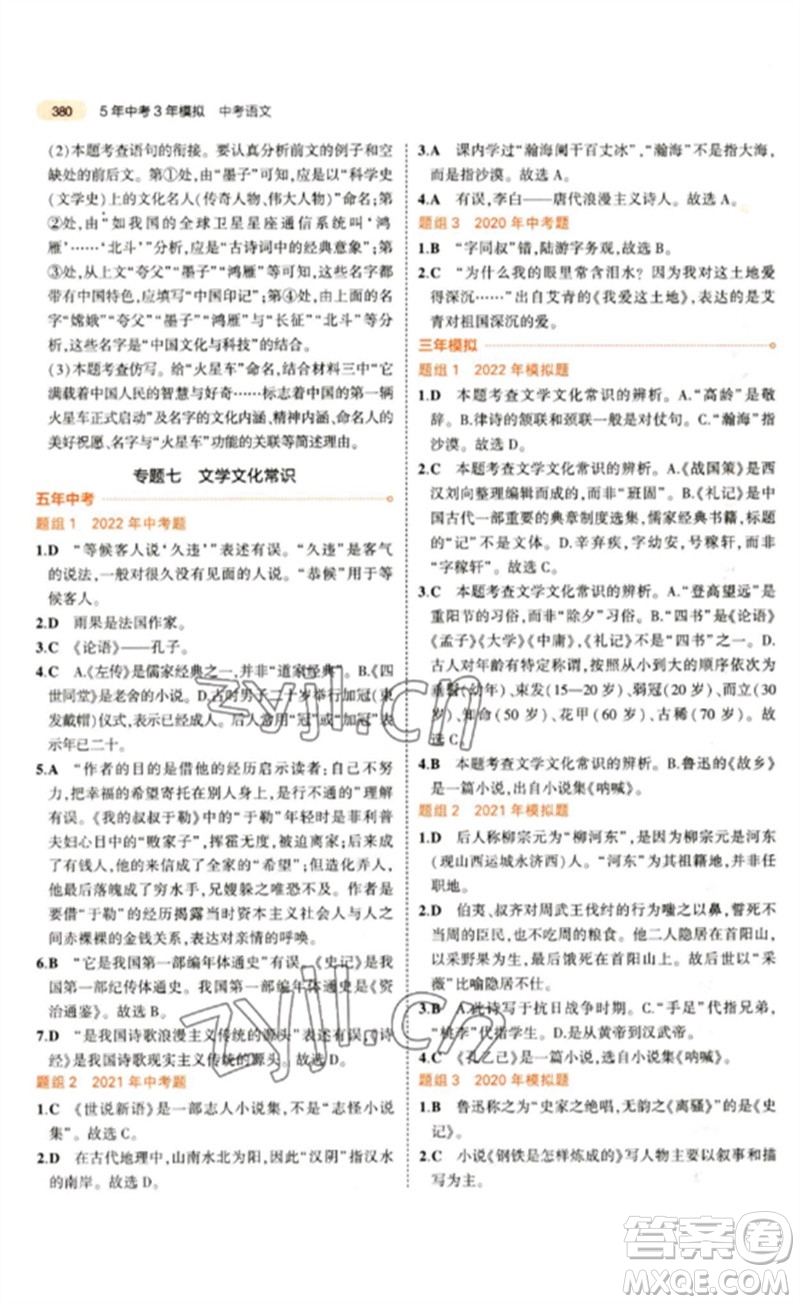 380 5年中考3年模拟 中考语文
(2)本题考查语句的衔接。要认真分析前文的例子和空
缺处的前后文。第①处,由“墨子”分析是以“科学史
(文学史)上的文化名人(传奇人物、伟大人物)”命名;第
②处,由“如我国的全球卫星星座通信系统叫‘鸿
雁’……‘北斗’”分析,应“古诗词中的经典意象”;第③
处,从前文“夸父”“墨子”“鸿雁”分析可知,这些都带
着中国特色,应填写“中国印记”;第④处,由前后文
“嫦娥”“夸父”“墨子”“鸿雁”与“长征”“北斗”等分
析,应是“中国文化与科技”的结合。
(3)本题考查仿写。给“火星车”命名应结合材料三中“它
满载着中国人民的智慧与好奇……标志着中国的第一辆
火星车正式启动”及名字的文化内涵,精神内涵,寄予的
美好祝愿、名字与“火星车”功能的关联等简述理由。
专题七 文学文化常识
五年中考
题组1 2022年中考题
1.D “等候客人说‘久违’”表述有误。“久违”是客气
的说法,一般对很久没有见面的人说。“恭候”用于等
候客人。
2.D 雨果是法国作家。
3.C 《论语》——孔子。
4.C A.《左传》是儒家经典之一,并非“道家经典”。B.《四
世同堂》是老舍的小说。D.古时男子二十岁举行加冠(束
发戴帽)仪式,表示成人。后人常用“冠”或“加冠”表
示年已二十。
5.A “作者的目的是借他的经历启示读者:自己不努
力,把幸福的希望寄托在别人身上,是可悲的”理解
有误。《我的叔叔于勒》中于勒年轻时是菲利普
夫妇心目中的“败家子”,挥霍无度,被迫出走。后
来,他的来信成了全家的“希望”;但造化弄人,于勒
后来落魄成了穷水手,兄嫂躲之唯恐不及。作者是
要借“于勒”的经历揭露当时资本主义社会人与人
之间赤裸裸的金钱关系,表达对亲情的呼唤。
6.B “它是我国第一部编年体通史”有误,《史记》是我国
第一部纪传体通史。我国第一部编年体通史是《资
治通鉴》。故选B。
7.D “是我国诗歌浪漫主义传统的源头”有误,《诗
经》是我国诗歌现实主义传统的源头。故选D。
题组2 2021年中考题
1.C 《世说新语》是一部志人小说集,并非“志怪小说
集”。故选C。
2.D 在古代地理中,山南水北为阳,因此“汉阴”指汉水
的南岸。故选D。
3.A 课内学过“瀚海阑干百丈冰”,“瀚海”不是指大海,
而是指沙漠。故选A。
4.A 有误,李白——唐代浪漫主义诗人。故选A。
题组3 2020年中考题
1.B “字同叔”错,陆游字务观,故选B。
2.C “为什么我的眼里常含泪水?因为我对这土地爱
得深沉……”出自艾青的《我爱这土地》,表达的是艾
青对祖国深沉的爱。
三年模拟
题组1 2022年模拟题
1.D 本题考查文学文化常识的辨析。A.“高龄”是敬
辞。B.律诗的颔联和颈联一般是对仗句。C.“瀚海”指
沙漠。故选D。
2.C 本题考查文学文化常识的辨析。A.《战国策》是西
汉刘向整理编辑而成的,并非“班固”。B.《礼记》是中
国古代一部重要的典章制度选集,儒家经典书籍,标题
的“记”不是文体。D.辛弃疾,字幼安,号稼轩,并非
“字稼轩”。故选C。
3.C 本题考查文学文化常识的辨析。A.“登高望远”是
重阳节的习俗,而非“除夕”习俗。B.“四书”是《论语》
《孟子》《大学》《中庸》,《礼记》不是“四书”之一。D.
古人对年龄有特定称呼,按照从小到大的顺序依次为
垂髫(幼年)、束发(15—20岁)、弱冠(20岁)、而立(30
岁)、知命(50岁)、花甲(60岁)、古稀(70岁)。故
选C。
4.B 本题考查文学文化常识的辨析。B.鲁迅的《故乡》
是一篇小说,出自小说集《呐喊》。
题组2 2021年模拟题
1.D 后人称柳宗元为“柳河东”,柳宗元是河东
(现山西运城永济西)人。“河东”为籍贯,并非任
职地。
2.D 伯夷、叔齐对周武王伐纣的行为嗤之以鼻,誓死不
当周的臣民,也不吃周的粮食。他二人隐居在首阳山,
以采野果为生,后来双双饿死在首阳山。诗中用“采
薇”比喻隐居不仕。
3.B A.此诗写于抗日战争时期。C.“手足”代指兄弟,
“桃李”代指学生。D.是从景帝到汉武帝。
4.C 《孔乙己》是一篇小说,选自小说集《呐喊》。
题组3 2020年模拟题
1.D 鲁迅称之为“史家之绝唱,无韵之《离骚》”的是《史
记》。
2.C 小说《钢铁是怎样炼成的》写人物主要以叙事和描
写为主。
zyjl.cn
zyjl.cn
答案圈
MXQE.COM